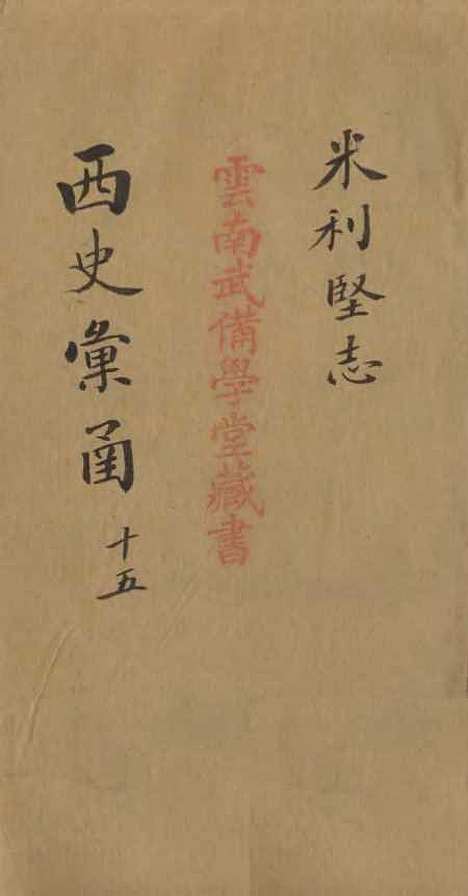 米利堅志
雲南武備學堂藏書
西史彙圅
十五